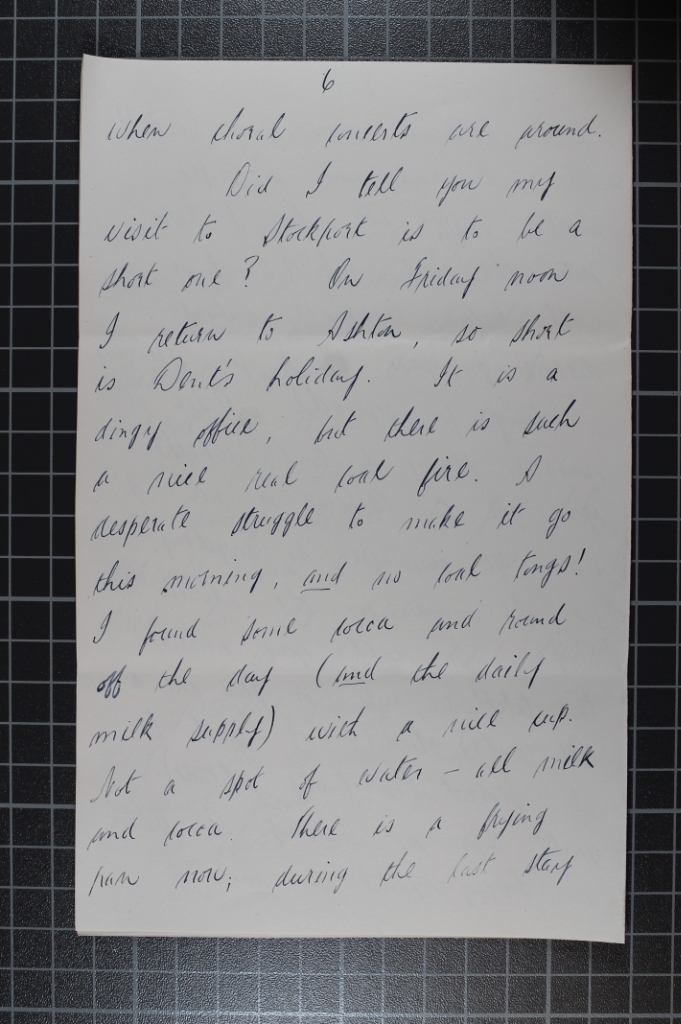 6
when choral concerts are around.
Did I tell you my
visit to Stockport is to be a
short one? On Friday noon
I return to Ashton, so short
is Dent's holiday. It is a
dingy office, but there is such
a nice real coal fire. A
desperate struggle to make it go
this morning, and no coal tongs!
I found some cocoa and round
off the day (and the daily
milk supply) with a nice cup.
Not a spot of water – all milk
and cocoa. There is a frying
pan now; during the last stay